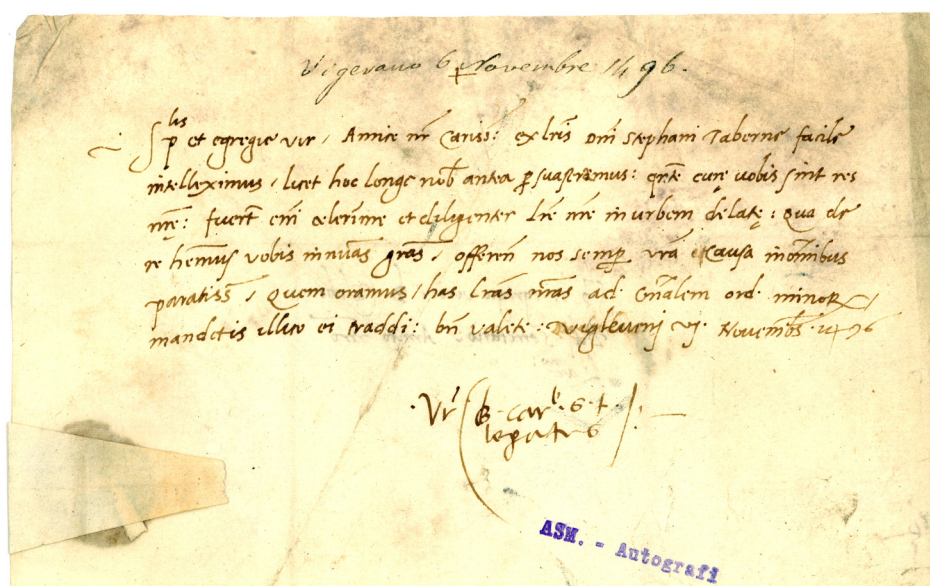 Vigevano 6 Novembre 1496.
Sp^lis et egregie vir, Amice nr̄ Cariss̄: ex lrīs Dnī Stephani Taberne facile
intelleximus, licet hoc longe nob̄ antea ꝑsuaseramus: qn̄te cure vobis sint res
nrę: fuert̄ enī celerrime et diligenter Lrē nrē in urbem delatę: Qua de
re hemus vobis grās, offeren̄ nos semꝑ vrā causa in om̄ibus
paratiss̄, Quem oramus, has Lrās nrās ad Gn̄alem ord. minoꝝ,
mandetis illico ei traddi: bn̄ valete: Viglevenj vj. Novemb̄. 1496
Vr̄ B. Car^lis. S. †
legatus
ASM. - Autografi